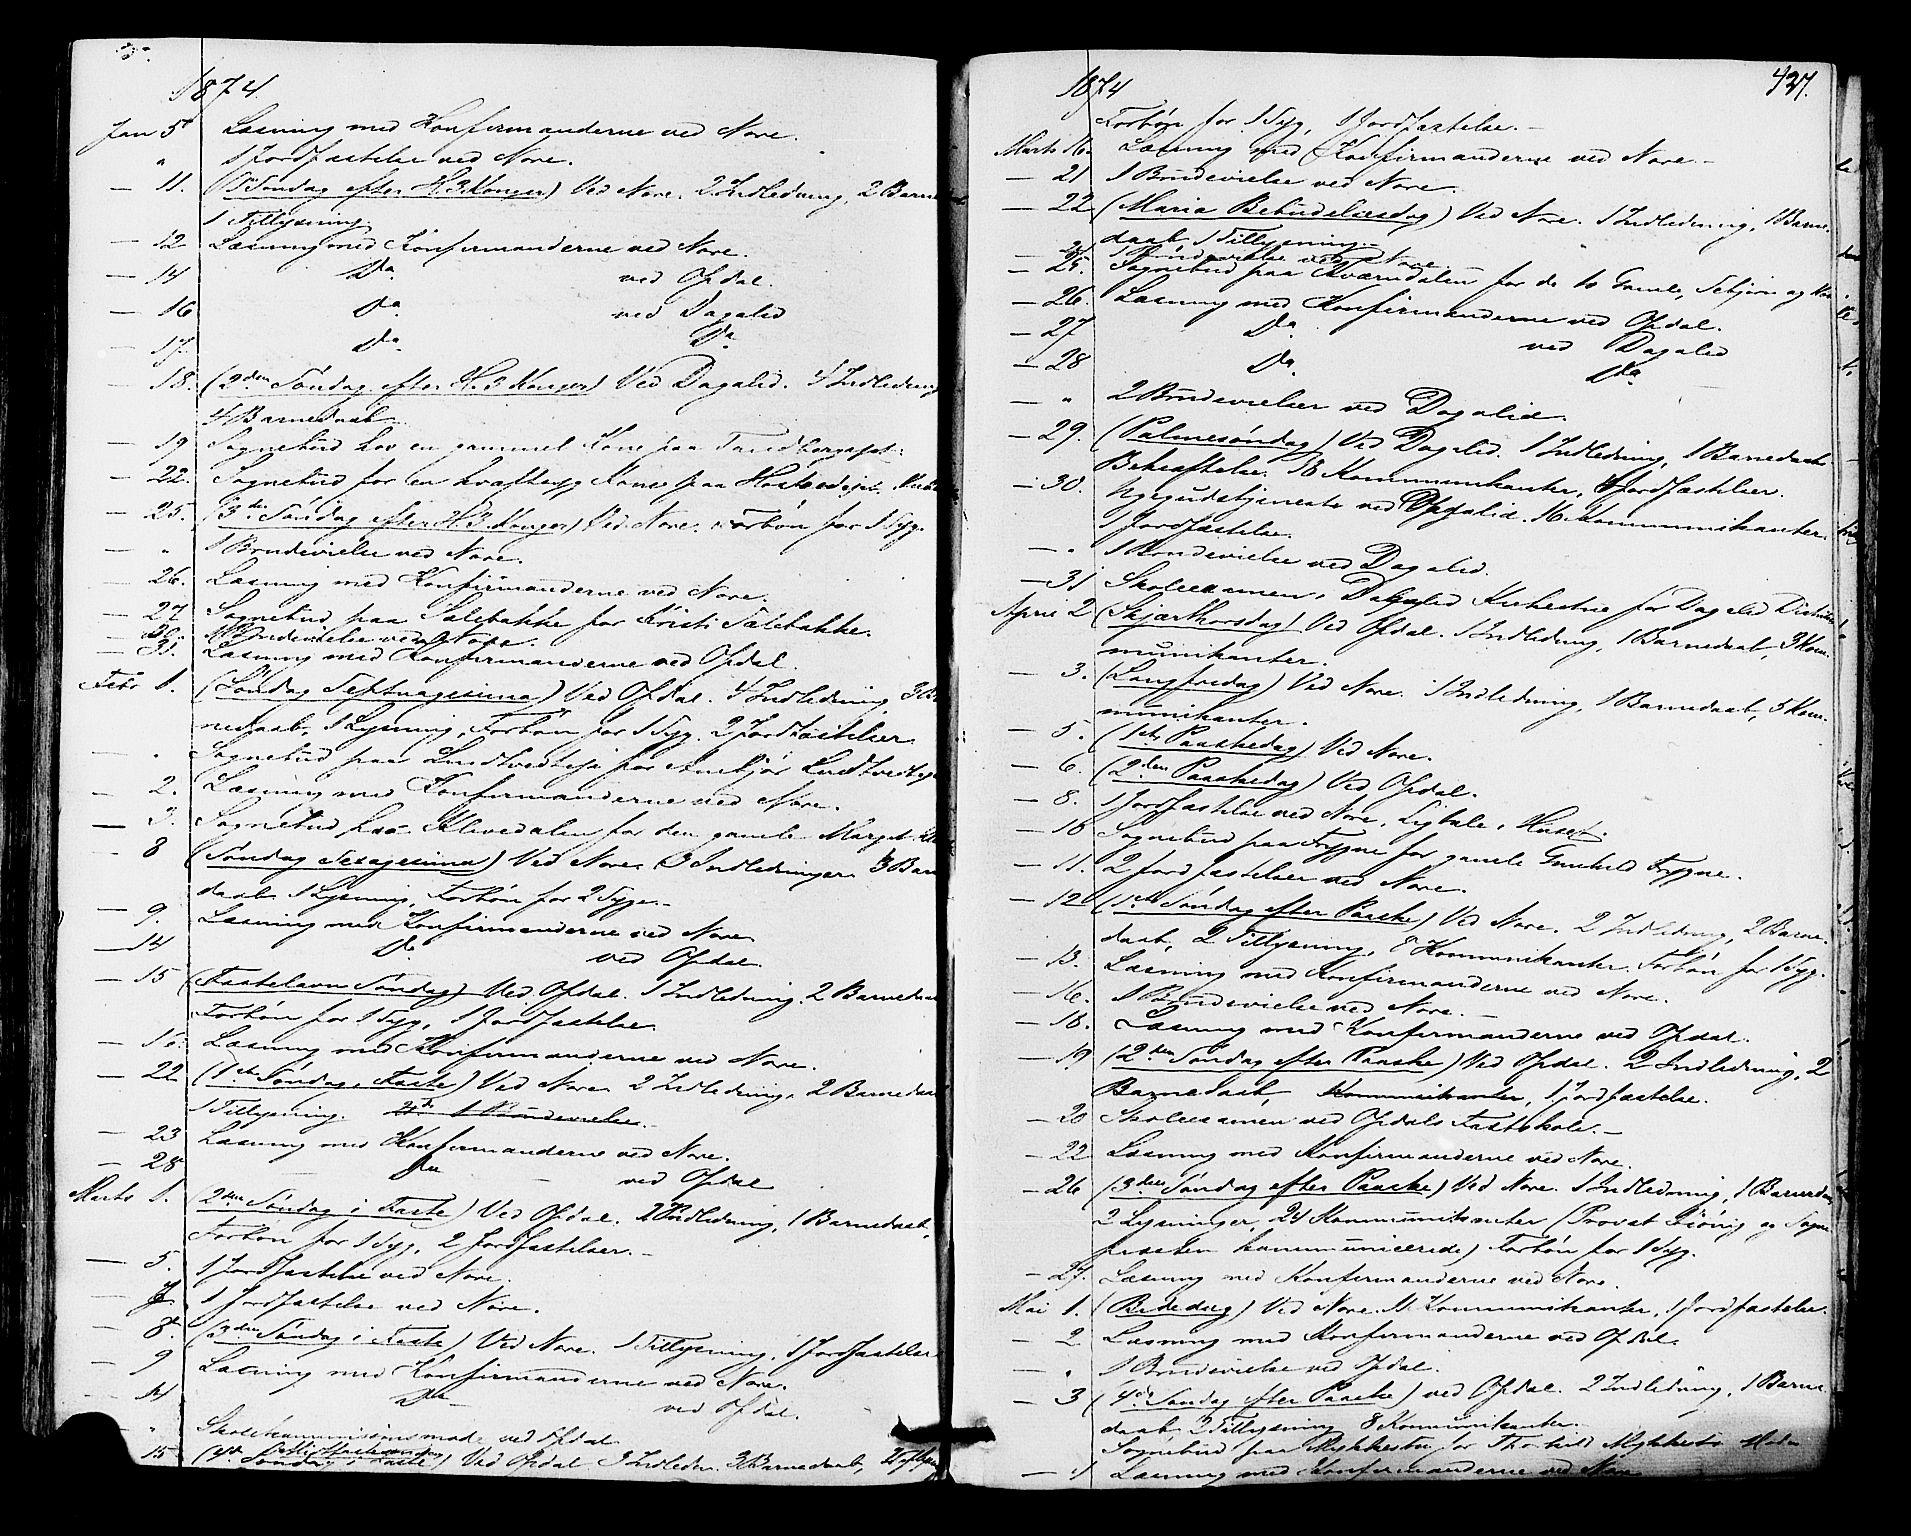 1874
Jan 5t Læsning med Konfirmanderne ved Nore.
" 1 Jordfæstelse ved Nore.
— 11. (1ste Søndag efter H. 3 Konger) Ved Nore. 2 Indledning, 2 Barne
1 Tillysning.
— 12 Læsning med Konfirmanderne ved Nore.
— 14 Do. ved Opdal.
— 16 Do. ved Dagalid
— 17. Do. Do
— 18. (2den Søndag efter H. 3 Konger) Ved Dagalid. 4 Indledning
4 Barnedaab.
— 19 Sognebud hos en gammel Kone paa
— 22. Sognebud for en Kone paa
— 25. (3die Søndag efter H. 3 Konger) Ved Nore. Forbøn for 1 Syg.
— " 1 Brudevielse ved Nore.
— 26. Læsning med Konfirmanderne ved Nore.
— 27 Sognebud paa Sælebakke for Kristi Sælebakke.
— 30. Brudevielse ved Nore.
— 31. Læsning med Konfirmanderne ved Opdal.
Febr 1. (Søndag Septuagesima) Ved Opdal. 4 Indledning, 3 Bar
nedaab, 1 Lysning, Forbøn for 1 Syg. 2 Jordfæstelser
" Sognebud paa for
— 2. Læsning med Konfirmanderne ved Nore.
— 3. Sognebud paa Klevedalen for den gamle Marget
— 8 (Søndag Sexagesima) Ved Nore 3 Indledninger 3 Barne
daab 1 Lysning, Forbøn for 2 Syge.—
— 9. Læsning med Konfirmanderne ved Nore
— 14 Do ved Opdal.
— 15 (Fastelavns Søndag) Ved Opdal. 1 Indledning, 2 Barnedaab
Forbøn for 1 Syg, 1 Jordfæstelse
— 16. Læsning med Konfirmanderne ved Nore.
— 22 (1ste Søndag i Faste) Ved Nore 2 Indledning, 2 Barnedaab
1 Tillysning. 1 Brudevielse.
— 23 Læsning med Konfirmanderne ved Nore.
— 28 Do ved Opdal
Marts 1. (2den Søndag i Faste) Ved Opdal. 2 Indledning, 1 Barnedaab,
Forbøn for 1 Syg, 2 Jordfæstelser.—
— 5. 1 Jordfæstelse ved Nore.
— 7. 1 Jordfæstelse ved Nore.
— 8. (3die Søndag i Faste) Ved Nore. 1 Tillysning, 1 Jordfæstelse
— 9 Læsning med Konfirmanderne ved Nore.
— 14 Do ved Opdal.
" Skolekommissionsmøde ved Opdal
15 (4de Søndag i Faste) Ved Opdal 3 Indledn. 3 Barnedaab,
1874 437.
Forbøn for 1 Syg, 1 Jordfæstelse.—
Marts 16. Læsning med Konfirmanderne ved Nore—
— 21 1 Brudevielse ved Nore.
— 22 (Maria Bebudelsesdag) Ved Nore. 1 Indledning, 1 Barne-
daab, 1 Tillysning.—
1 Brudevielse ved Nore.
— 25. Sognebud paa Kværndalen for de to Gamle, og
— 26. Læsning med Konfirmanderne ved Opdal.
— 27 Do. ved Dagalid
— 28 Do. Do
— " 2 Brudevielser ved Dagalid.
— 29. (Palmesøndag) Ved Dagalid. 1 Indledning, 1 Barnedaabs
Bekræftelse. 16 Kommunikanter, Jordfæstelser.
— 30. Ugegudstjeneste ved Dagalid. 16 Kommunikanter.
1 Jordfæstelse.
— " 1 Brudevielse ved Dagalid.
— 31 Skoleexamen i Dagalid for Dagalid
April 2 (Skjærthorsdag) Ved Opdal. 1 Indledning, 1 Barnedaab, 3 Kom-
munikanter.
— 3. (Langfredag) Ved Nore. 1 Indledning, 1 Barnedaab, 5 Kom-
munikanter.
— 5. (1ste Paaskedag) Ved Nore.
— 6. (2den Paaskedag) Ved Opdal.
— 8. 1 Jordfæstelse ved Nore, Ligtale i Huset.
— 10 Sognebud paa Frygne for gamle Gunhild Frygne.
— 11. 2 Jordfæstelser ved Nore.
— 12 (1ste Søndag efter Paaske) Ved Nore. 2 Indledning, 2 Barne-
daab, 2 Tillysning, 8 Kommunikanter. Forbøn for 1 Syg.
— 13. Læsning med Konfirmanderne ved Nore.
— 16. 1 Brudevielse ved Nore.—
— 18. Læsning med Konfirmanderne ved Opdal.
— 19 (2den Søndag efter Paaske) Ved Opdal. 2 Indledning, 2
Barnedaab, Kommunikanter, 1 Jordfæstelse.
— 20 Skoleexamen ved Opdals Fastskole.—
— 22 Læsning med Konfirmanderne ved Nore.
— 26 (3die Søndag efter Paaske) Ved Nore. 1 Indledning, 1 Barnedaab
2 Lysninger, 24 Kommunikanter (Provst og Sogne
præsten kommunicerede) Forbøn for 1 Syg.
— 27. Læsning med Konfirmanderne ved Nore.
Mai 1. (Bededag) Ved Nore. 11 Kommunikanter, 1 Jordfæstelse.
— 2 Læsning med Konfirmanderne ved Opdal.
— " 1 Brudevielse ved Opdal.
— 3 (4de Søndag efter Paaske) ved Opdal. 2 Indledning, 1 Barne-
daab, 2 Tillysning 8 Kommunikanter.—
Sognebud paa for
— 4 Læsning med Konfirmanderne ved Nore